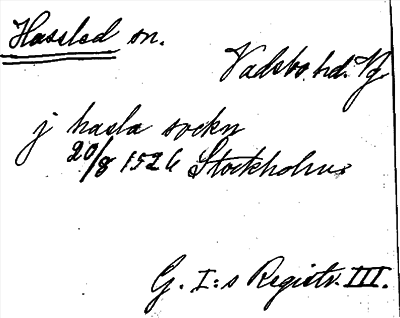 Hassled sn.
Vadsbo hd. Vg
j hasla sockn
20/8 1526 Stockholm
G. I:s Registr. III.